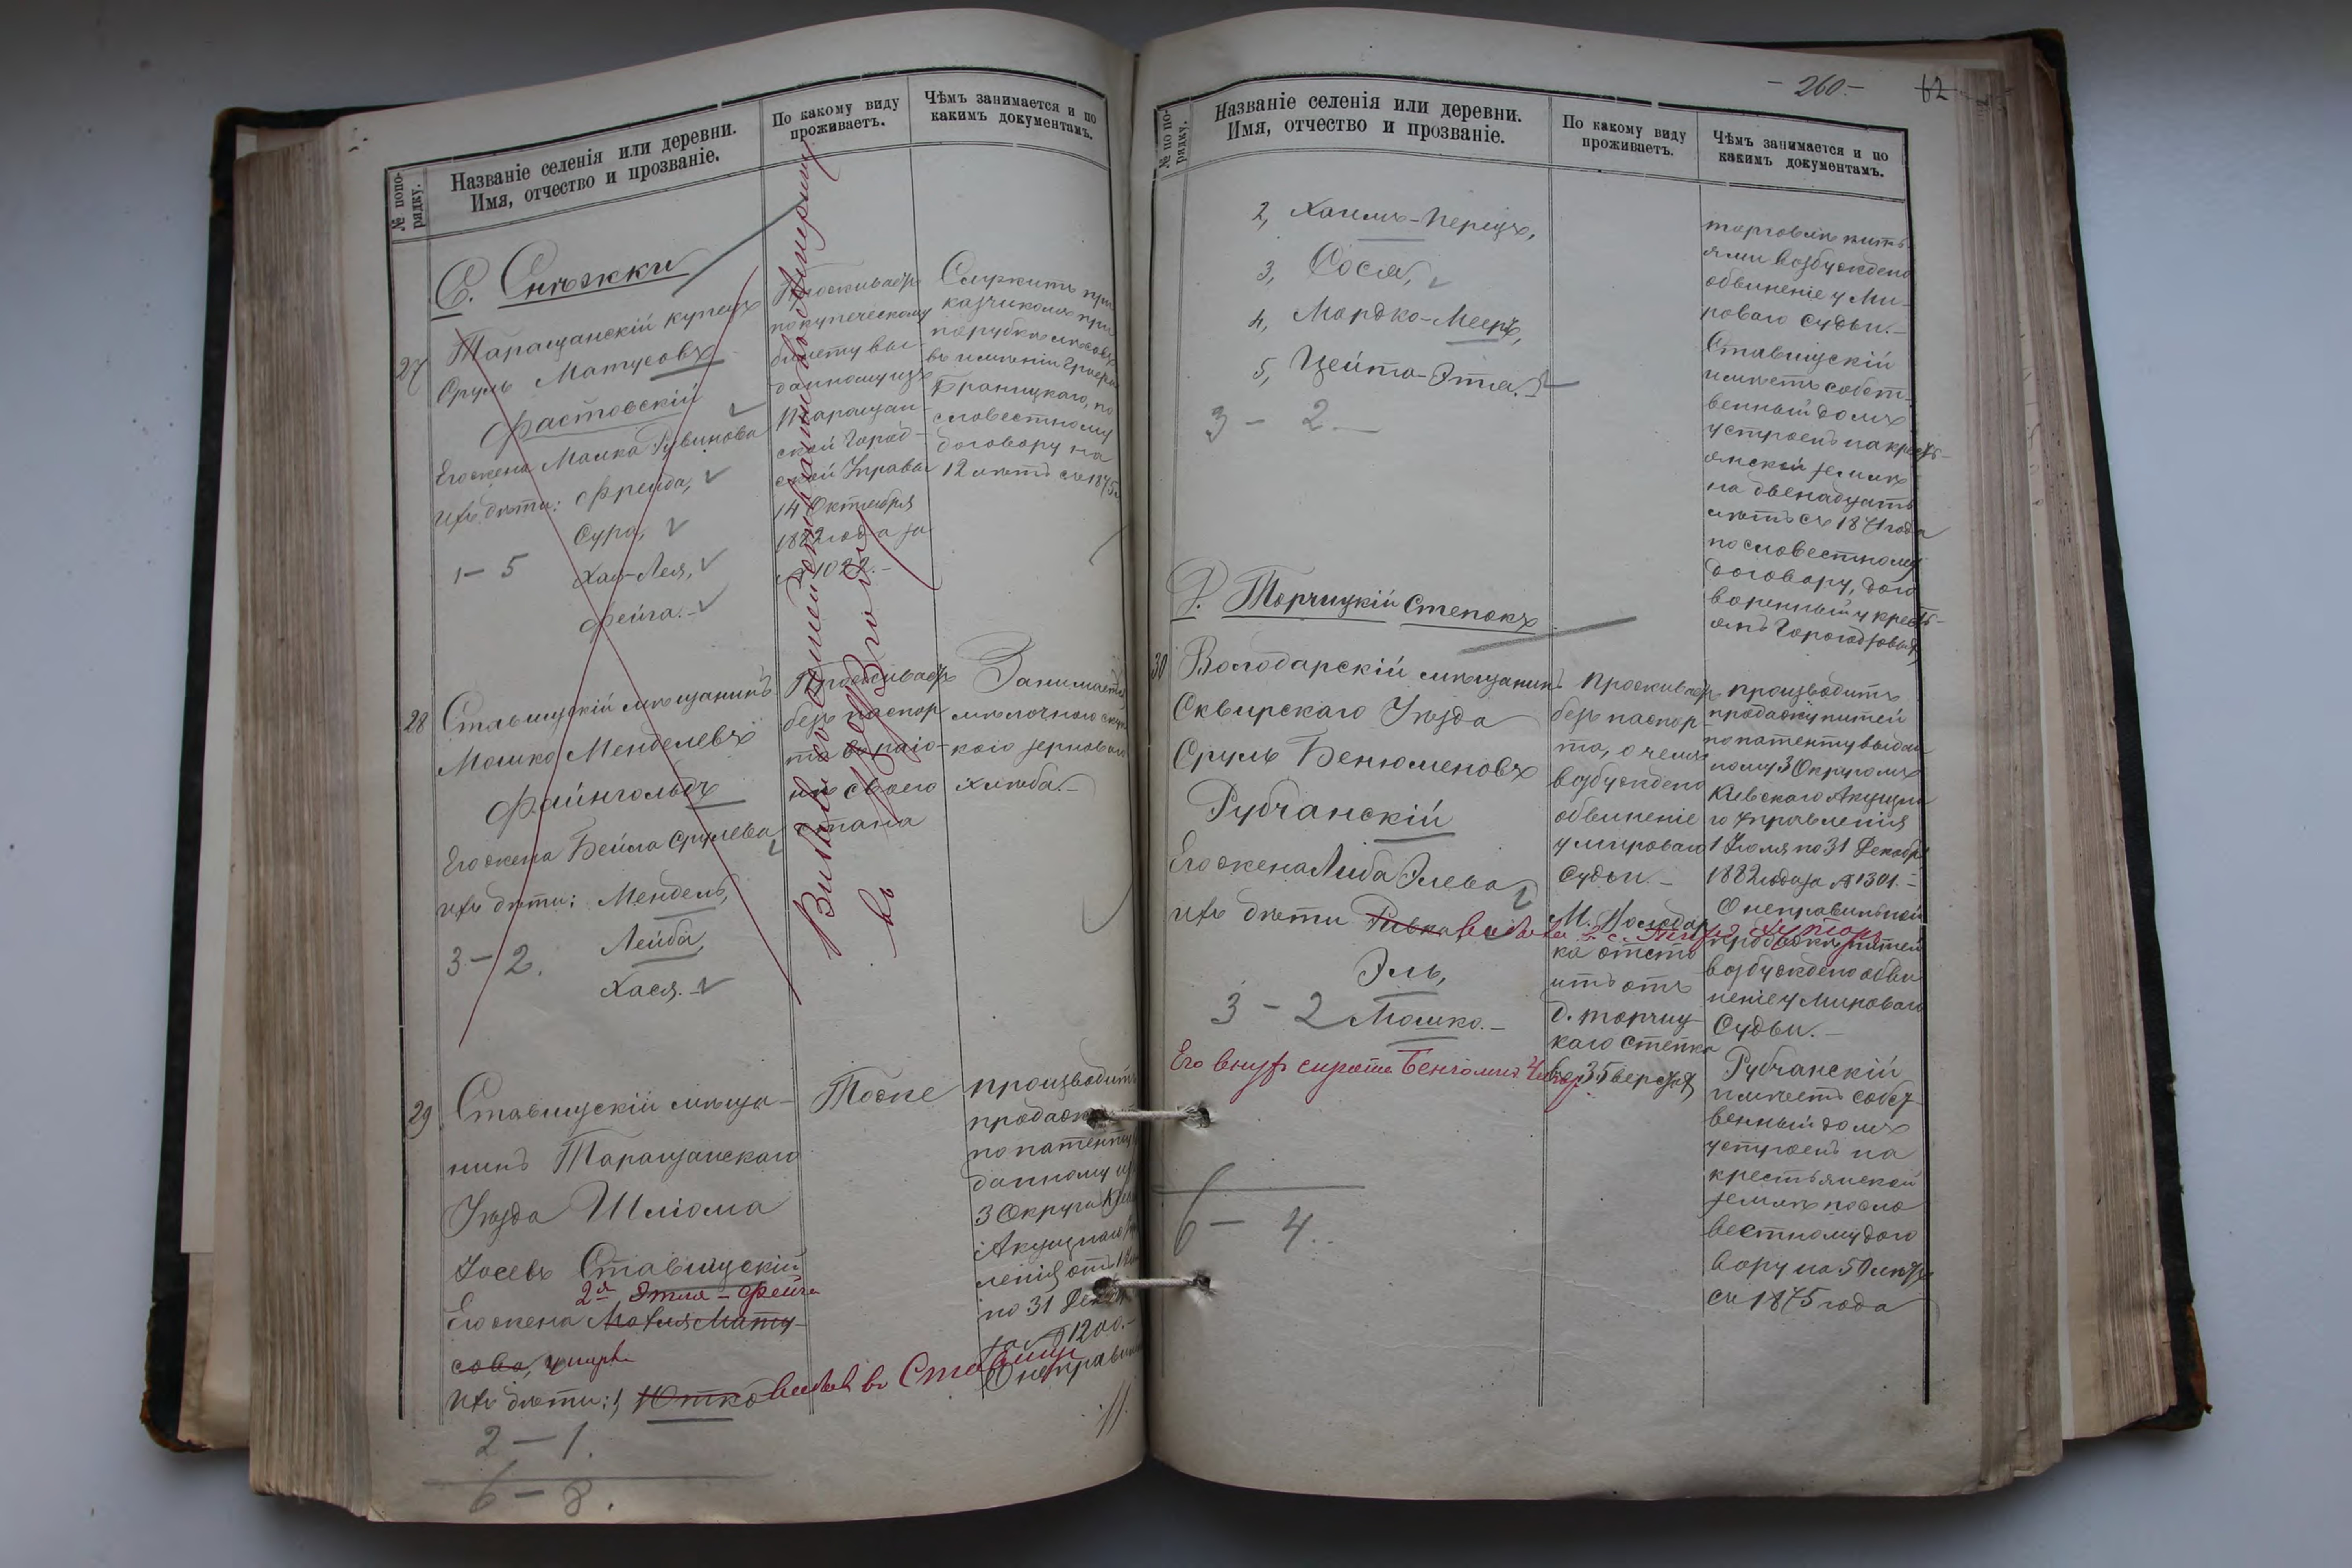 № по по-
рядку.
Названіе селенія или деревни.
Имя, отчество и прозваніе.
По какому виду
проживаетъ.
Чѣмъ занимается и по
какимъ документамъ.
С. Снѣжки
27
Таращанскій купецъ
Сруль Матусовъ
Фастовскій
Его жена Малка Рувинова
Ихъ дѣти: Фрейда,
Сура,
1 - 5
Хая-Лея,
Фейга. -
Проживаетъ
по купеческому
билету вы-
данному изъ
Таращан-
ской Город-
ской Управы
14 Октября
1882 года за
№ 1022. -
Служитъ при
кащикомъ при
порубкѣ лѣсовъ
въ имѣніи Графа
Браницкаго, по
словестному
договору на
12 лѣтъ съ 1875
28
Ставищскій мѣщанинъ
Мошко Менделевъ
Файнгольдъ
Его жена Бейла Срулева
Ихъ дѣти: Мендель,
Лейба,
3 - 2.
Хася. -
Проживаетъ
безъ паспор
та въ раіо-
нѣ своего
стана
Занимается
мѣлочного
кою зерноваго
хлѣба. -
29
Ставищскій мѣща-
нинъ Таращанскаго
Уѣзда Шліома
Іосевъ Ставищскій
2я Этля - Фейга
Его жена Матус-
сова, умерла
Ихъ дѣти: 1, Ютко выбыл въ Ставищи
2 - 1.
6 - 8.
Тоже
производитъ
продажу
по патенту
данному изъ
3 Округа
Акцизнаго
ленія отъ 1
по 31 Дек
за № 1200. -
О неправи
- 260. -
62
№ по по-
рядку.
Названіе селенія или деревни.
Имя, отчество и прозваніе.
По какому виду
проживаетъ.
Чѣмъ занимается и по
какимъ документамъ.
2, Хаимъ-Перецъ,
3, Сося,
4, Мордко-Мееръ,
5, Цейта-Этля.
3 - 2
торговлѣ пить-
ями возбуждено
обвиненіе у Ми-
роваго Судьи. -
Ставищскій
имѣетъ собст-
венный домъ
устроенъ на кресть-
янской землѣ
на двенадцать
лѣтъ съ 1871 года
по словестному
договору, дого
воренный у кресть-
янъ
Д. Торчицкій Степокъ
30
Володарскій мѣщанинъ
Сквирскаго Уѣзда
Сруль Бенюменовъ
Рубчанскій
Его жена Либа Элева
Ихъ дѣти Ривка
Эль,
3 - 2 Мошко. -
Его внукъ сирота Бенюмин
6 - 4.
Проживаетъ
безъ паспор
та, о чемъ
возбуждено
обвиненіе
у мироваго
Судьи. -
М. Володар
ка отсто
итъ отъ
д. Торчиц
каго Степка
въ 35 верстахъ
производитъ
продажу питей
по патенту выдан
ному 3 Округомъ
Кіевскаго Акцизна
го Управленія
1 Іюля по 31 Декабр
1882 года за № 1301. -
О неправильной
продажѣ питей
возбуждено обви
неніе у Мироваго
Судьи. -
Рубчанскій
имѣетъ собст
венный домъ
устроенъ на
крестьянской
землѣ по сло
вестному дого
вору на 50 лѣтъ
съ 1875 года